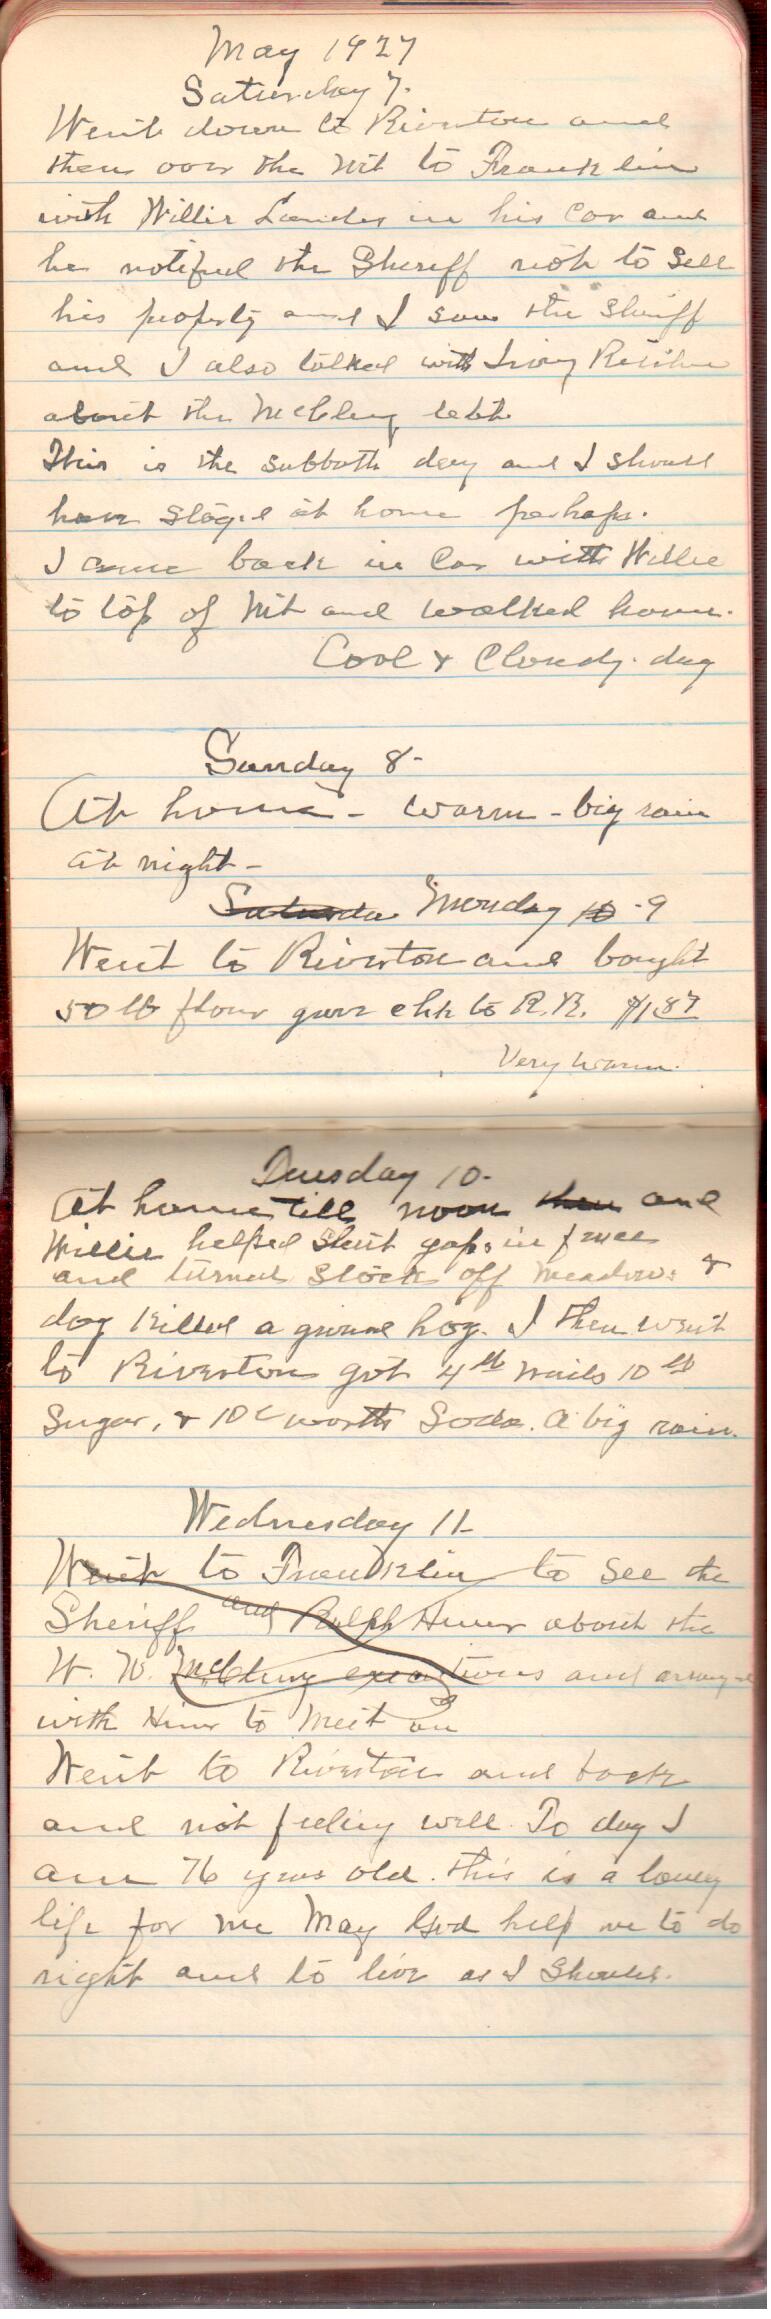 May 1927
Saturday 7.
Went down to Riverton and
then over the Mt to Franklin
with Willie Landes in his Car and
he notified the Sheriff not to sell
his property and I saw the Sheriff
and I also talked with
about the McClung debt
This is the Sabbath day and I should
have stayed at home perhaps.
I came back in Car with Willie
to top of Mt and walked home.
Cool & Cloudy day
Sunday 8-
At home - warm - big rain
at night -
Saturda Monday 10 - 9
Went to Riverton and bought
50 lb flour gave chk to R.R. $1.87
Very warm.
Tuesday 10-
At home till noon then and
Willie helped shut gaps in fence
and turned Stock off meadows &
dog killed a ground hog. I then went
to Riverton got 4 lb nails 10 lb
Sugar, & 10c worth Soda. A big rain.
Wednesday 11-
Went to Franklin to see the
Sheriff and Ralph Hiner about the
W. W. McClung executions and arranged
with Hiner to meet on
Went to Riverton and back
and not feeling well. To day I
am 76 years old. this is a lonely
life for me May God help me to do
right and to live as I should.